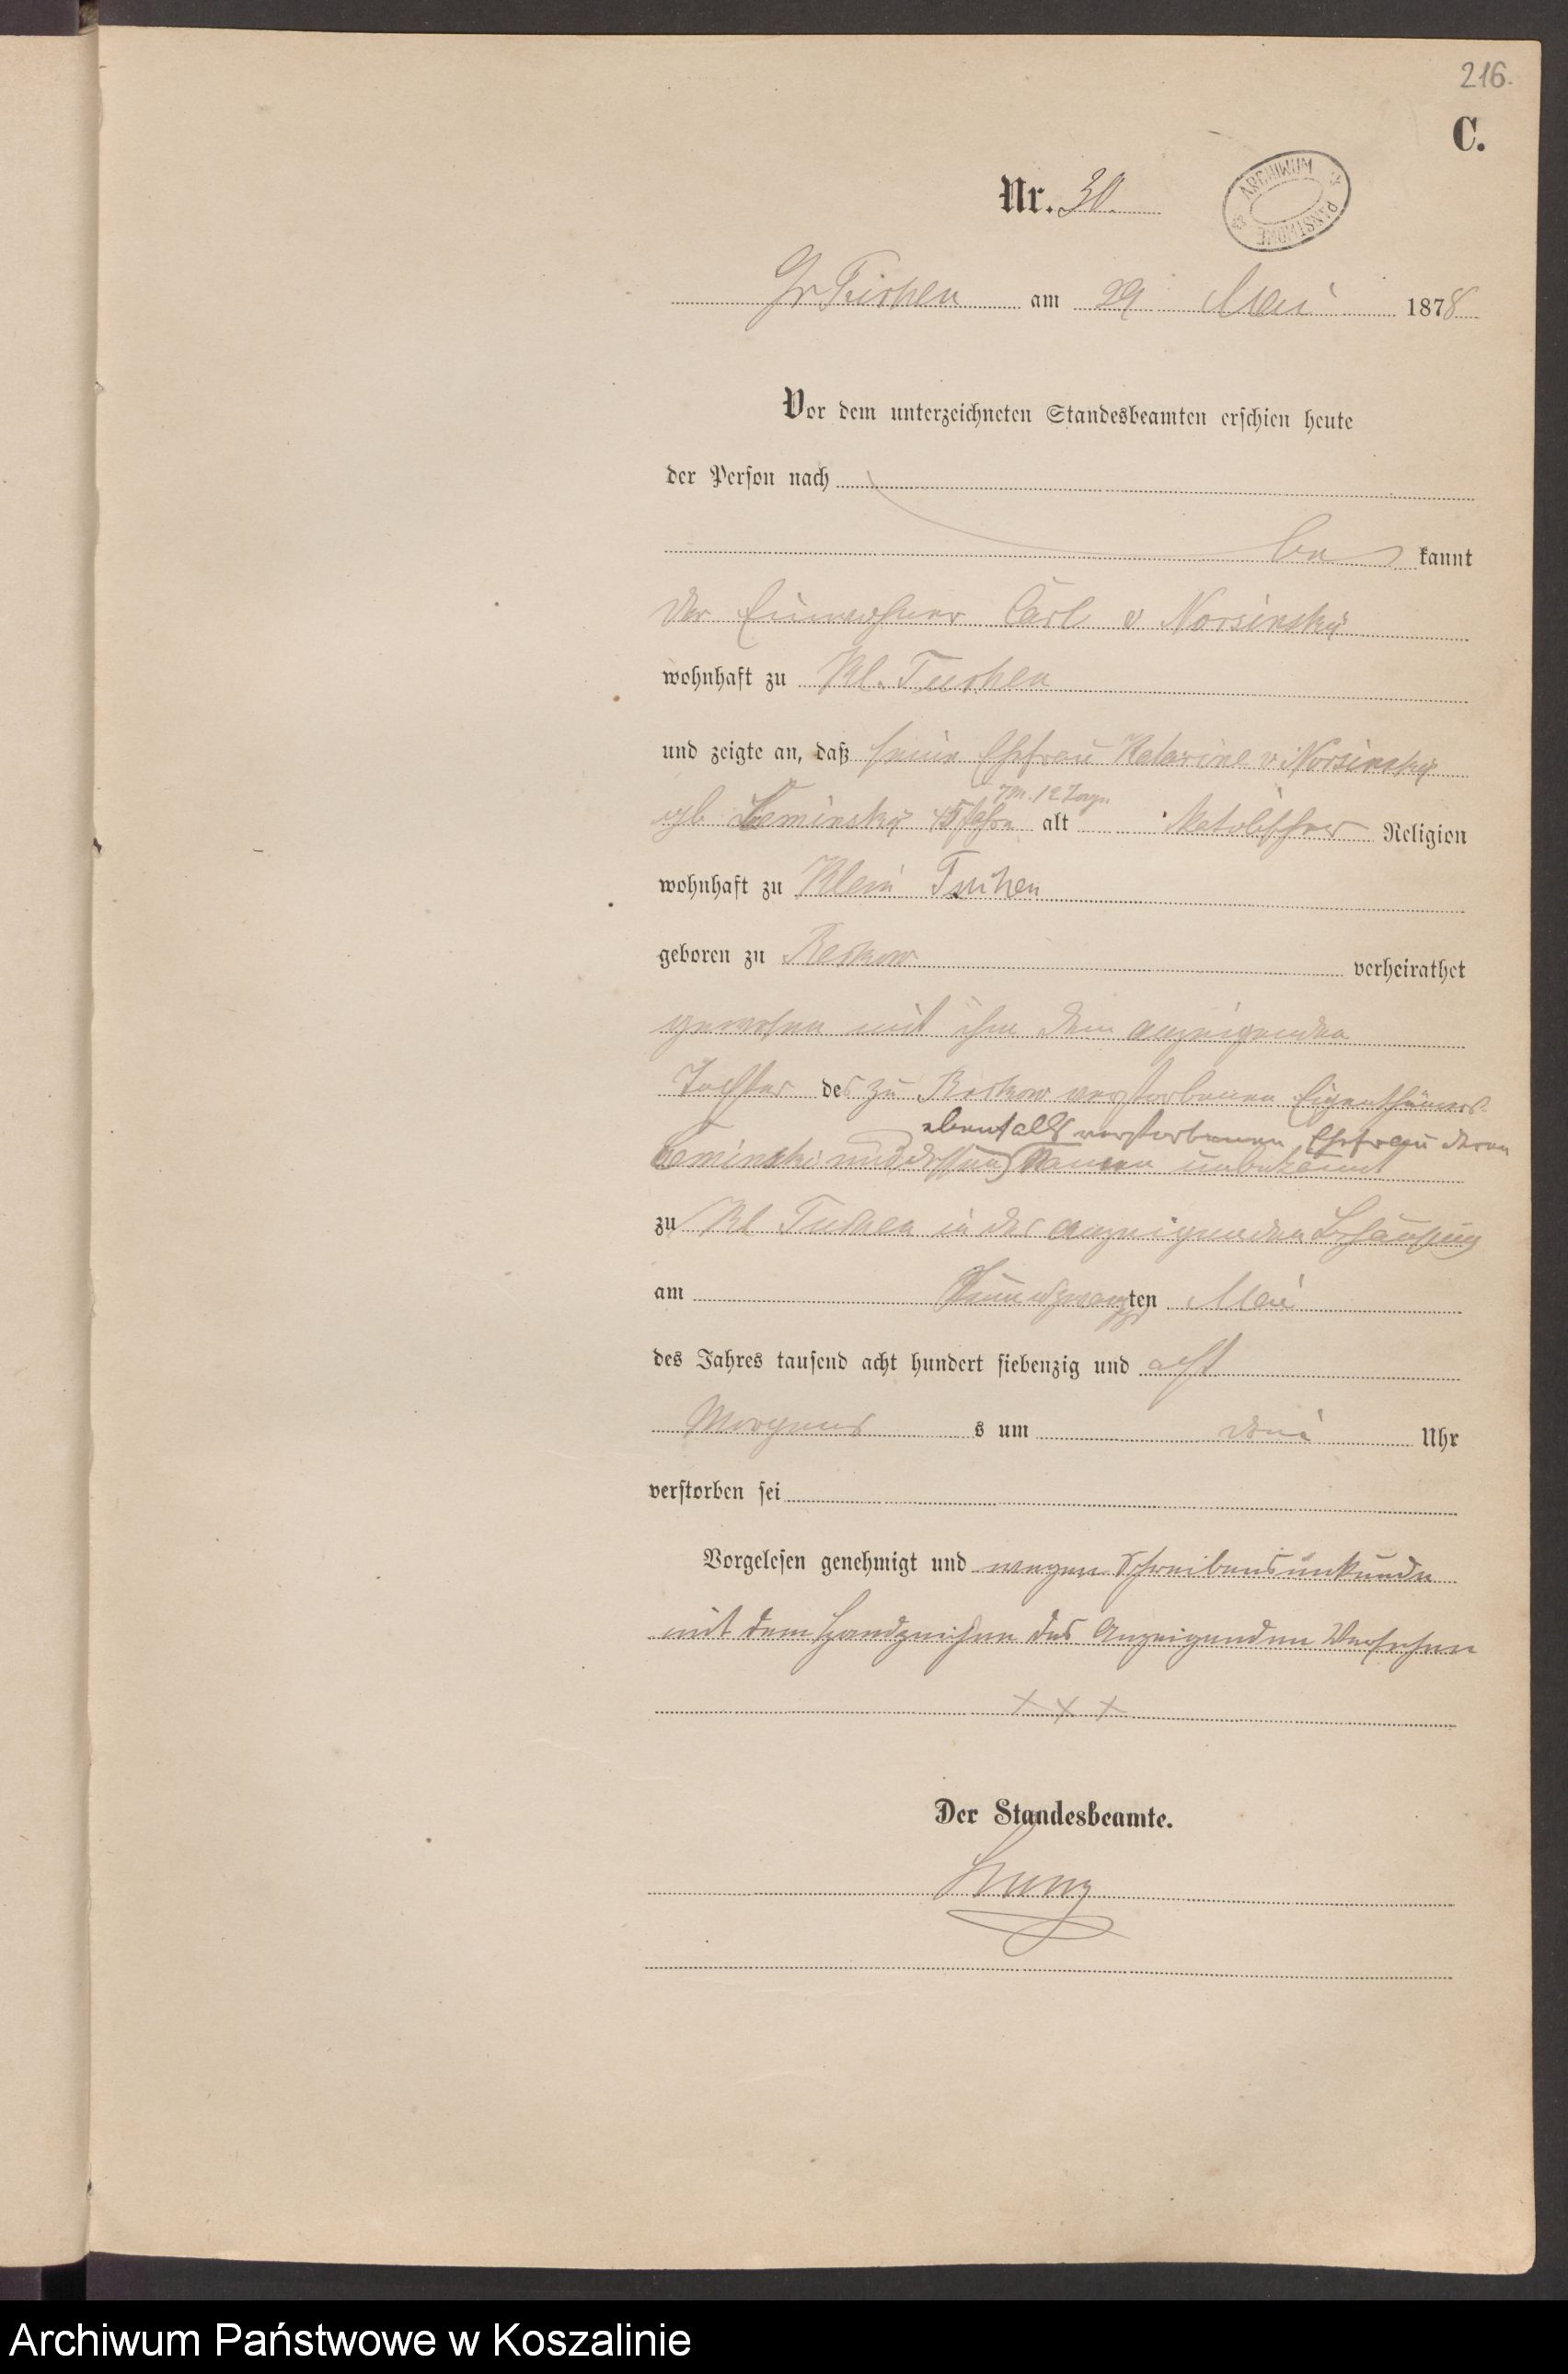 216.
C.
ARCHIWUM PAŃSTWOWE
Nr. 30.
Gr Tuchen am 29 Mai 1878
Vor dem unterzeichneten Standesbeamten erschien heute
der Person nach
be kannt
der Einwohner Carl v Norsinsky
wohnhaft zu Kl. Tuchen
und zeigte an, daß seine Ehefrau Katarine v Norsinsky
7 M. 12 Tage
gb Leminsky 45 Jahre alt Katolischer Religion
wohnhaft zu Klein Tuchen
geboren zu Reckow verheirathet
gewesen mit ihm dem anzeigenden
Tochter des zu Reckow verstorbenen Eigenthümers
ebenfalls verstorbenen Ehefrau deren
Leminski und dessen Namen unbekannt
zu Kl Tuchen in der anzeigenden Behausung
am ten Mai
des Jahres tausend acht hundert siebenzig und acht
Morgens s um drei Uhr
verstorben sei
Vorgelesen genehmigt und wegen Schreibensunkunde
mit dem Handzeichen des Anzeigenden Versehen
x x x
Der Standesbeamte.
Archiwum Państwowe w Koszalinie